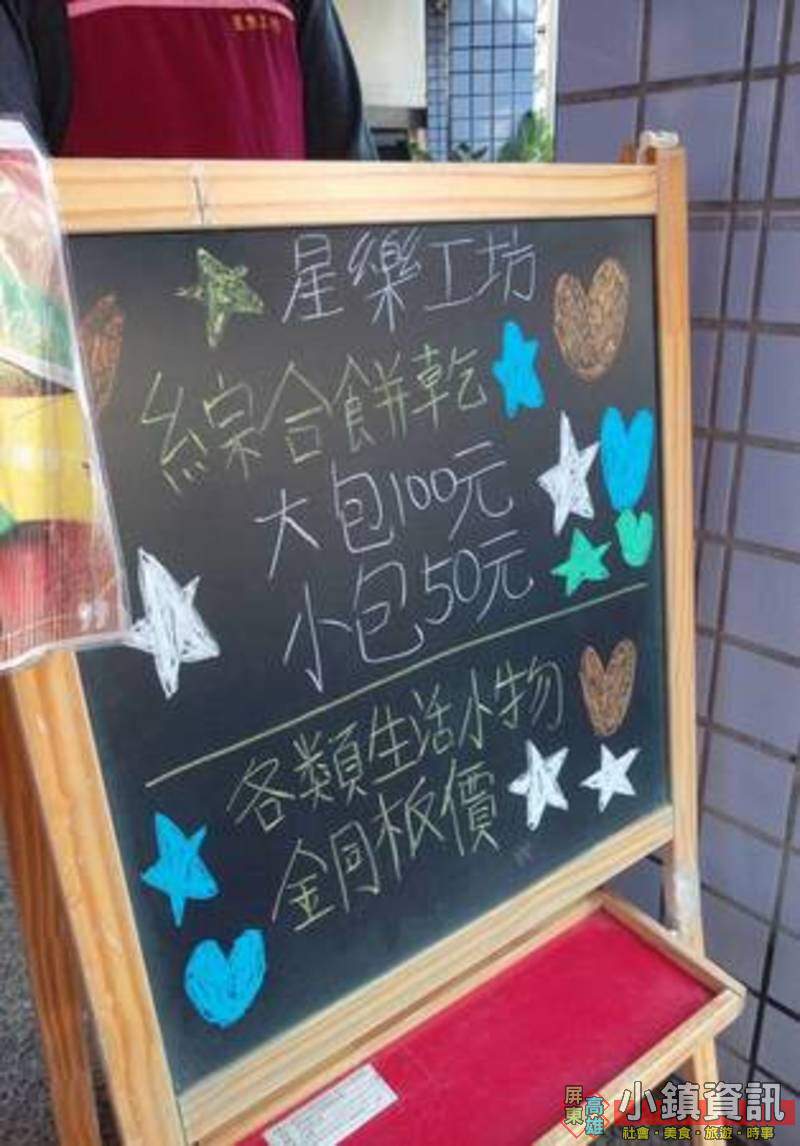 星樂工坊
綜合餅乾
大包100元
小包50元
各類生活小物
銅板價
屏東
高雄
小鎮資訊
社會・美食・旅遊・時事